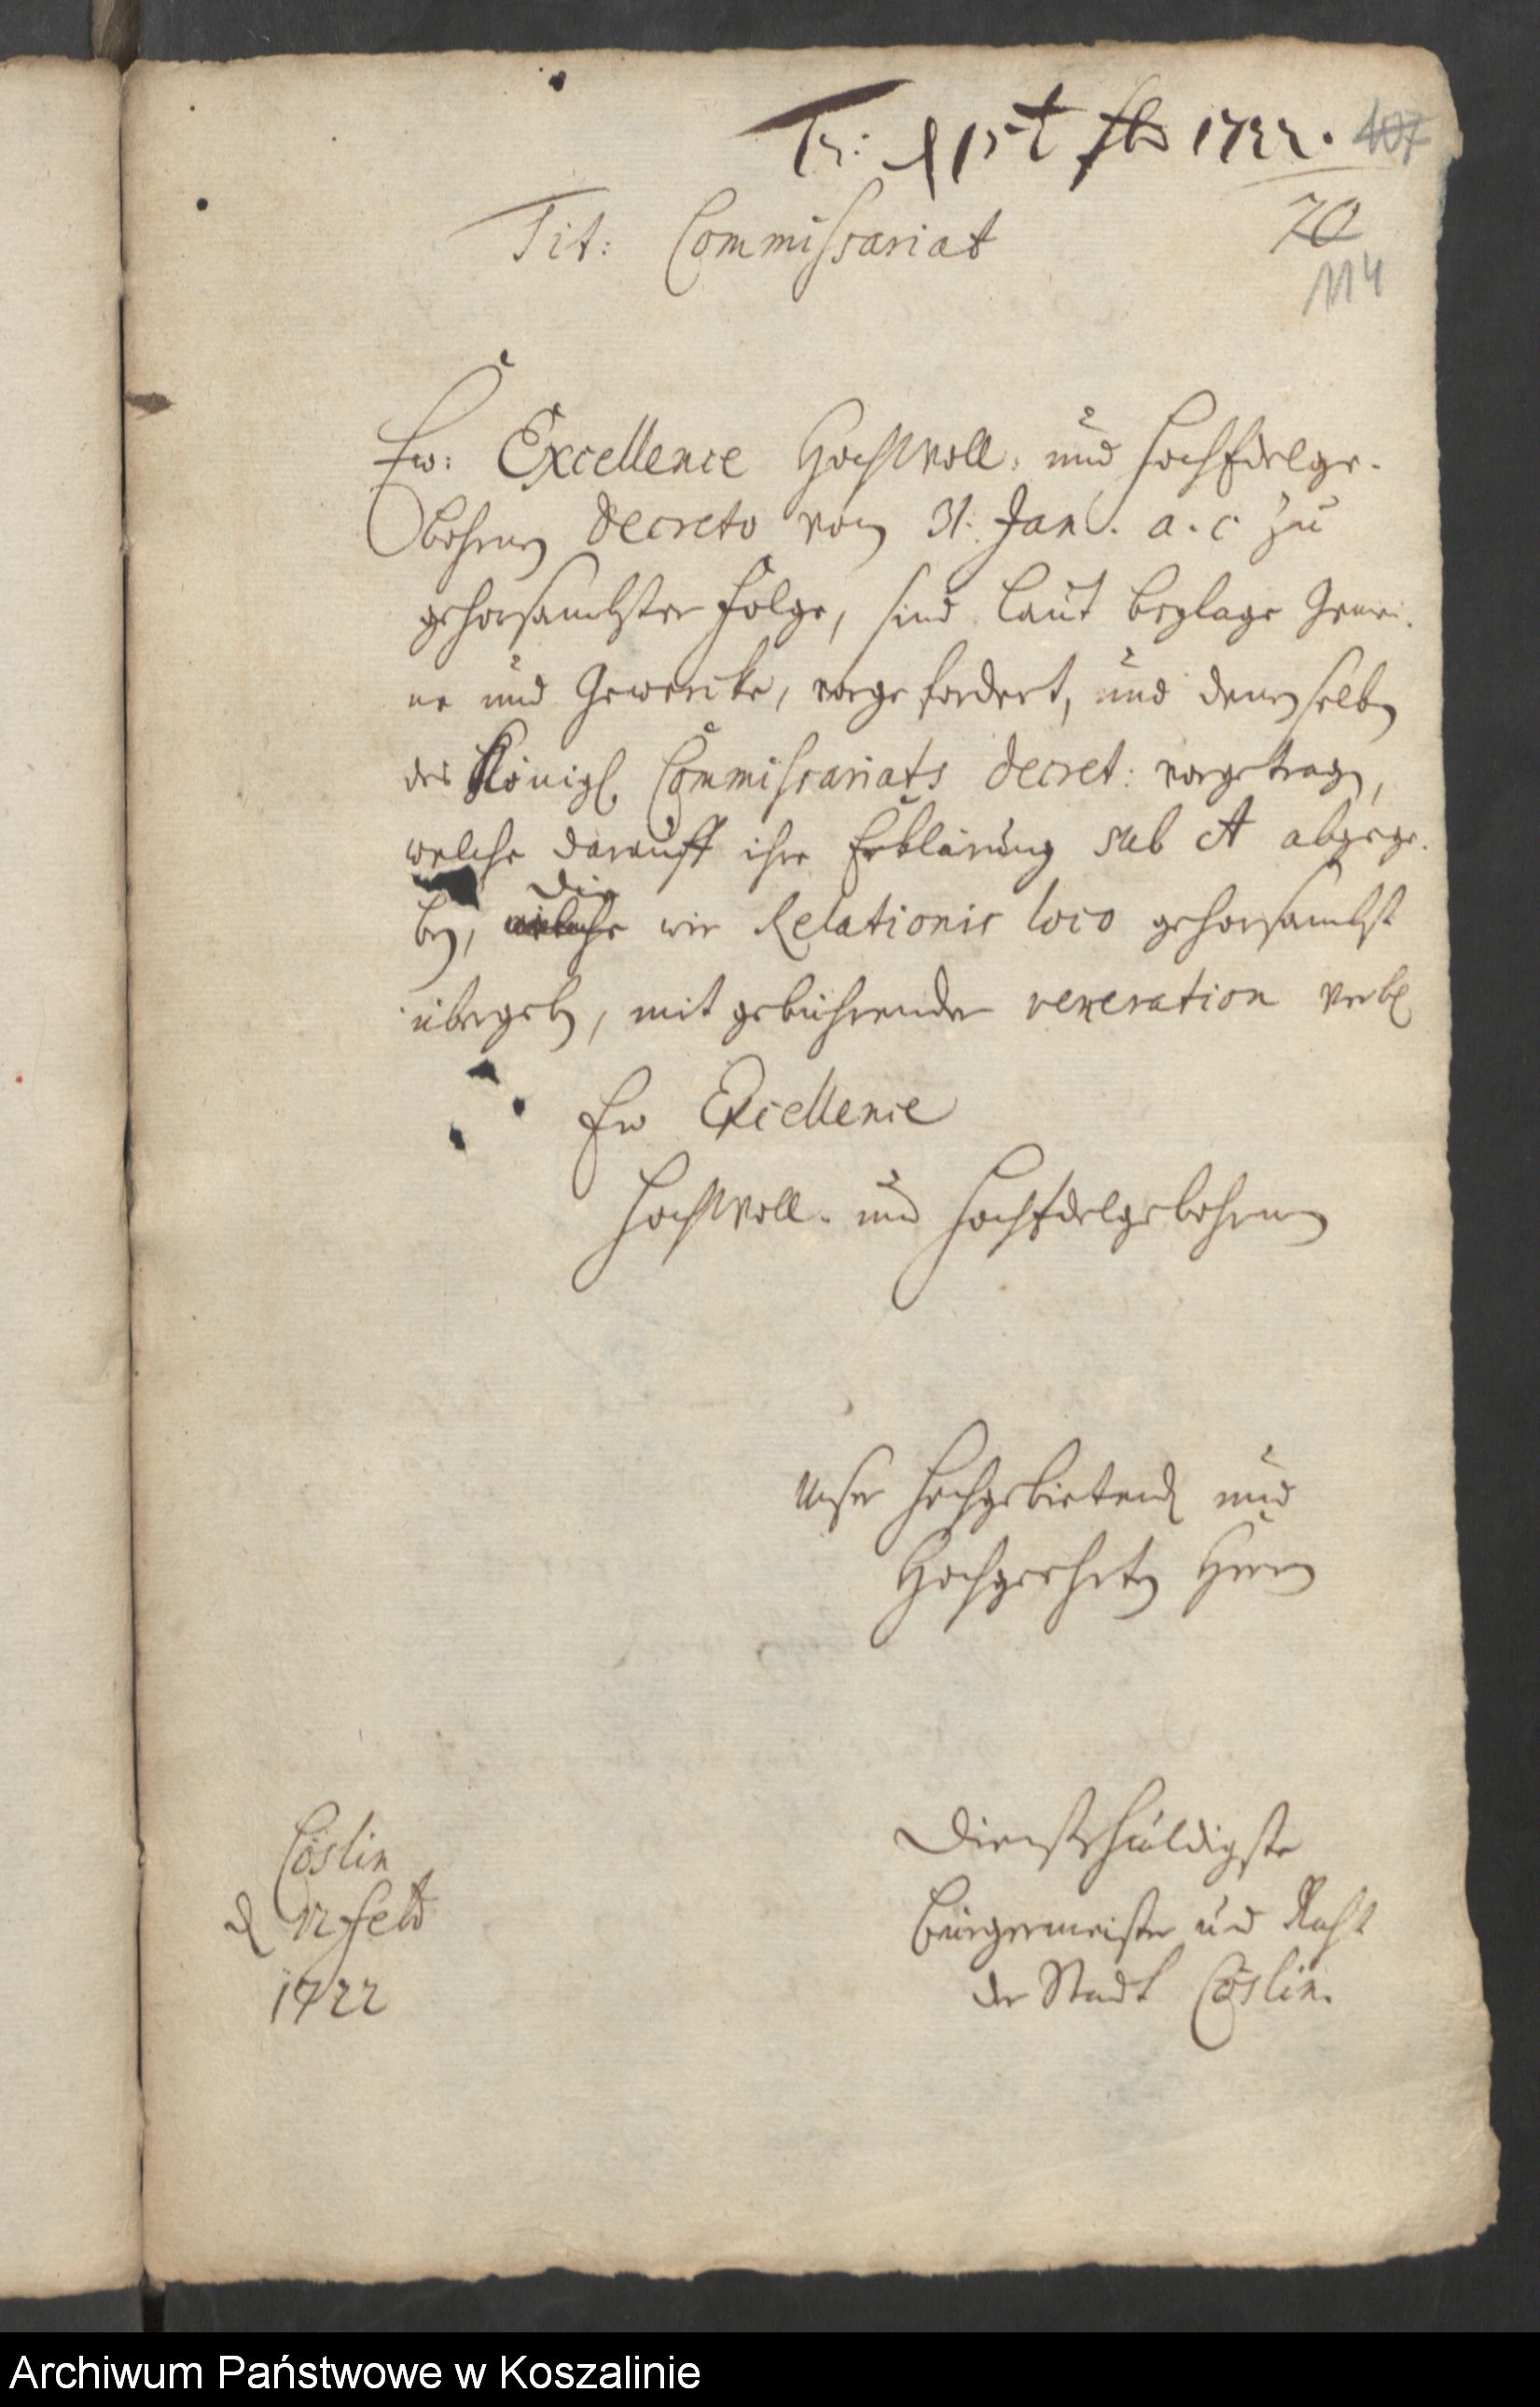 Tit: Commissariat
1722. 407
70
114
Ew: Excellence Hochwoll- und Hochedelge-
bohrnen Decreto vom 31. Jan. a. c. zu
gehorsambster folge, sind laut beylage Gemei-
ne und Gewercke, vorgefordert, und denenselben
des Königl. Commissariats decret: vorgetragen,
welche darauff ihre Erklärung sub A abgege-
die
ben, welche wir Relationis loco gehorsambst
übergeben, mit gebührender veneration
Ew Excellence
Hochwoll- und Hochedelgebohrnen
Unser Hochgebietende und
Hochgeehrten Herren
Dienstschuldigste
Bürgermeister und Raht
der Stadt Cöslin.
Cöslin
d 12 Feb
1722
Archiwum Państwowe w Koszalinie